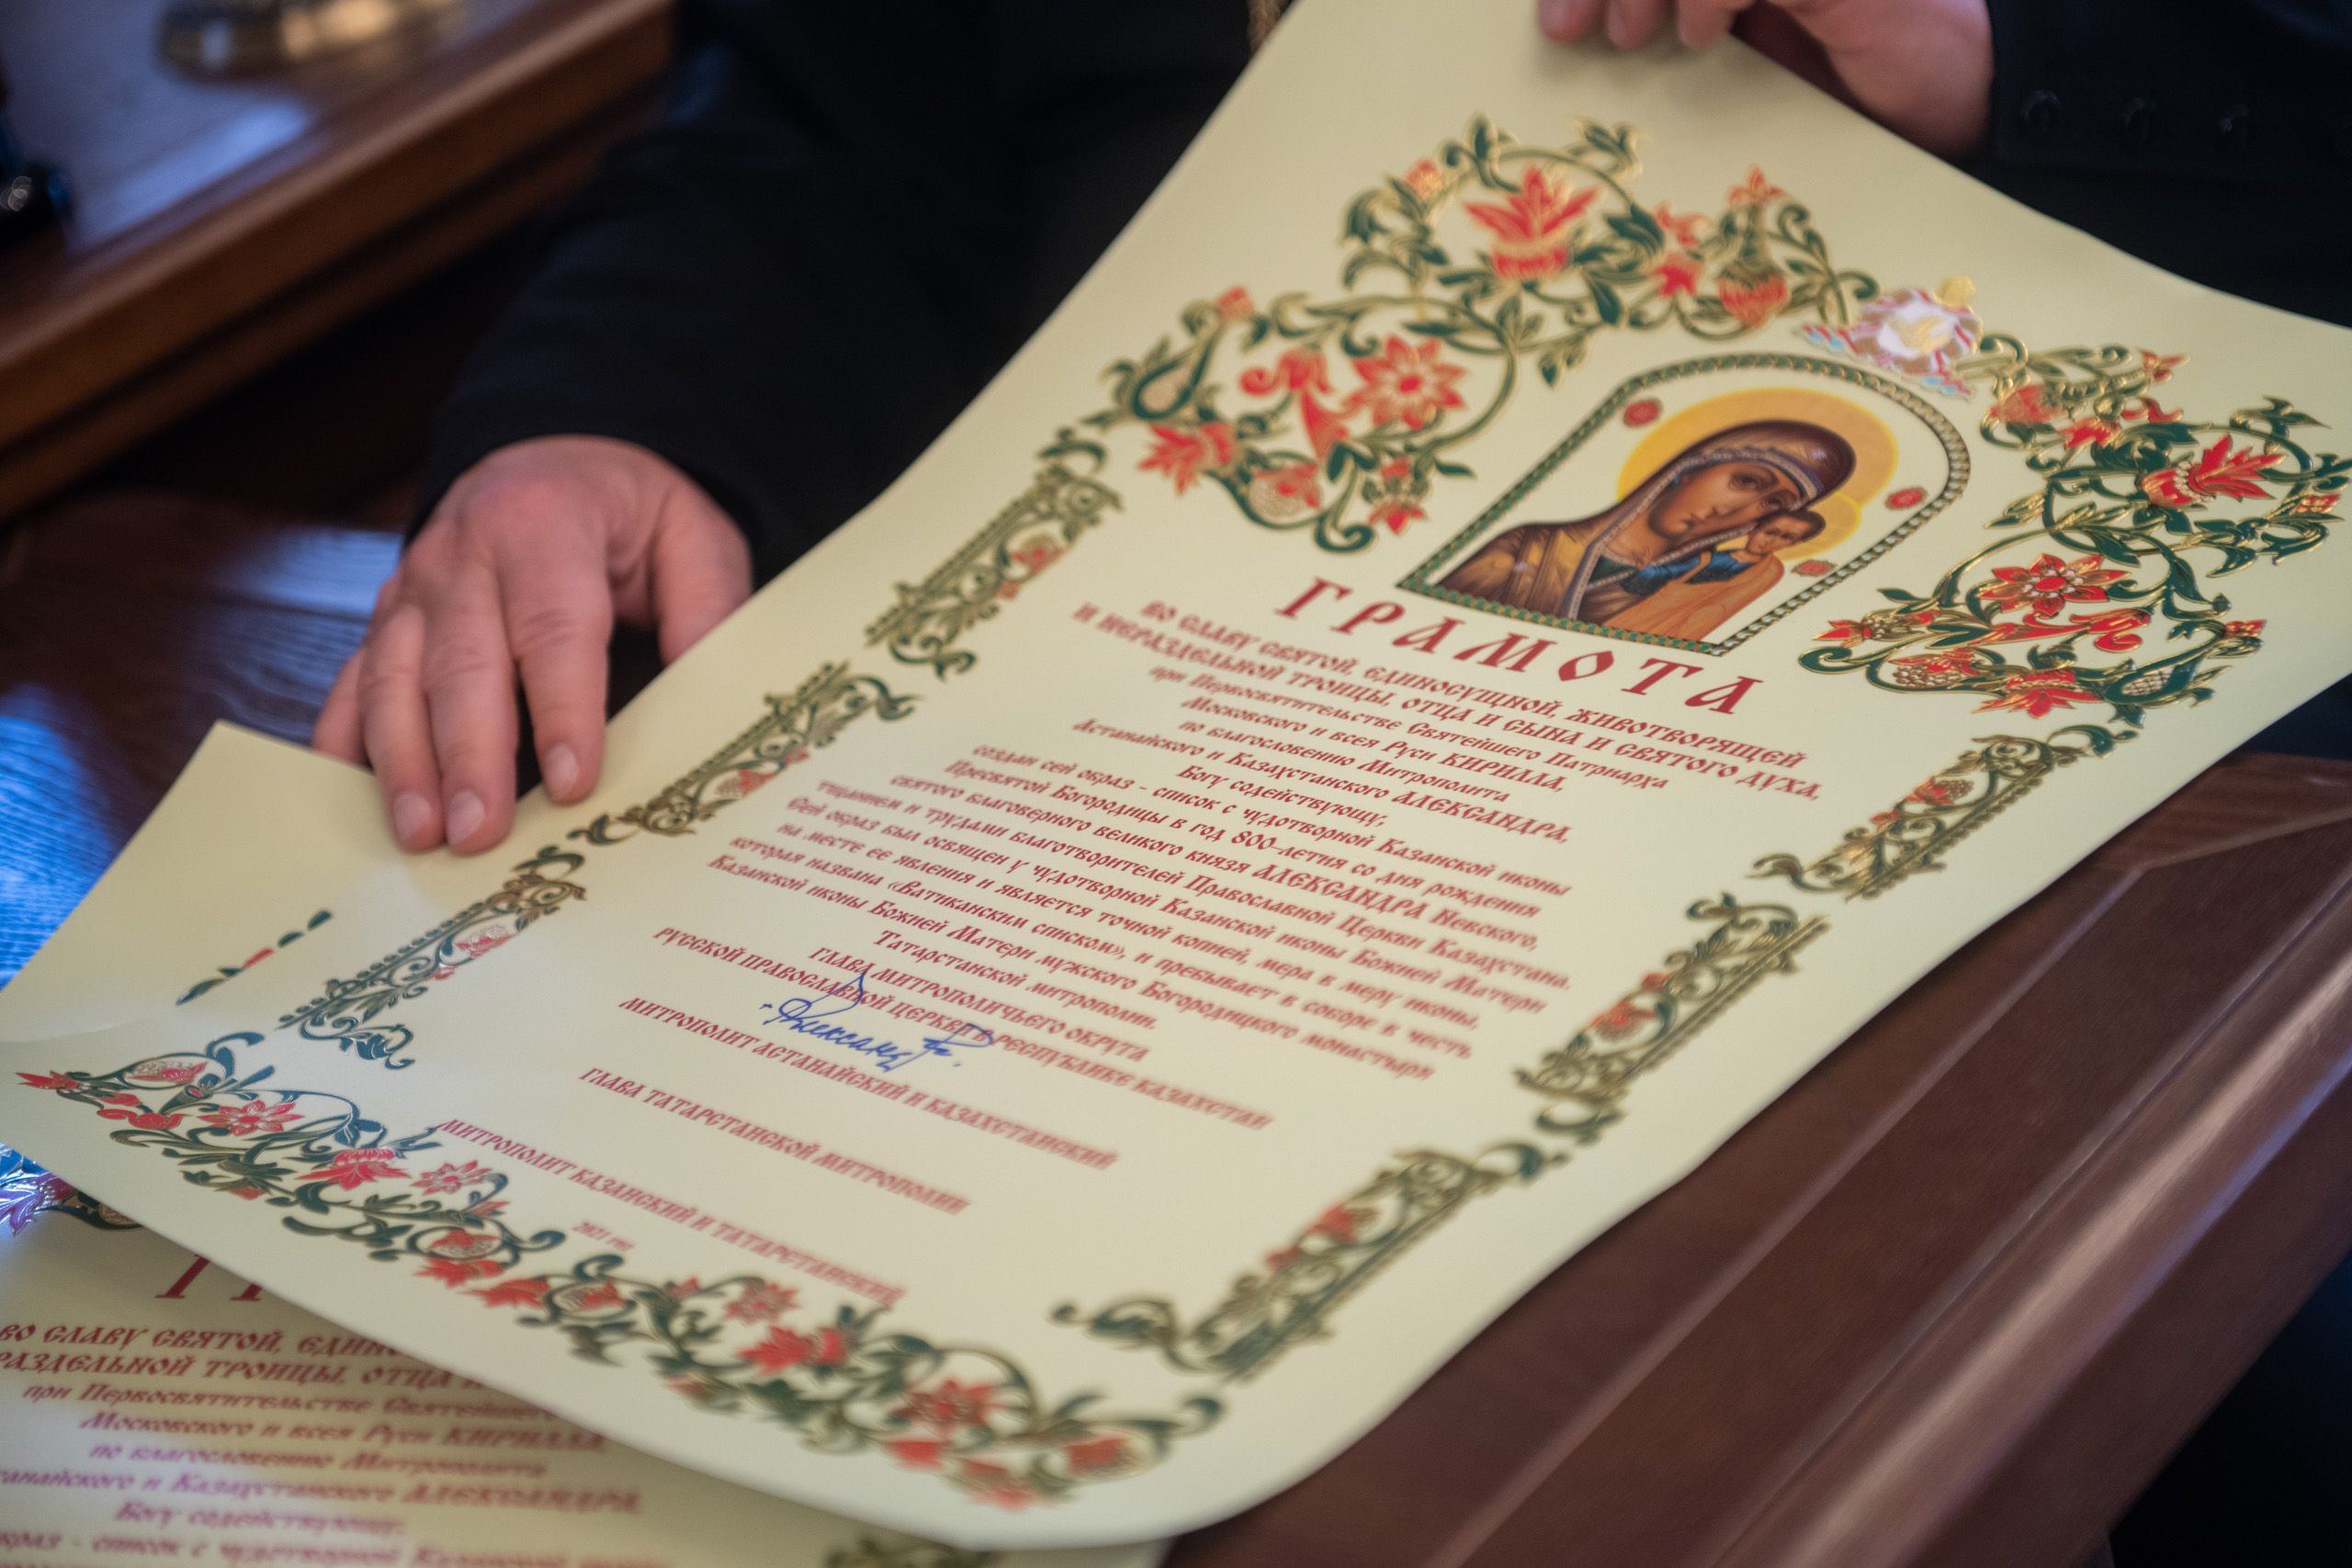 ГРАМОТА
ВО СЛАВУ СВЯТОЙ, ЕДИНОСУЩНОЙ, ЖИВОТВОРЯЩЕЙ
И НЕРАЗДЕЛЬНОЙ ТРОИЦЫ, ОТЦА И СЫНА И СВЯТОГО ДУХА,
при Первосвятительстве Святейшего Патриарха
Московского и всея Руси КИРИЛЛА,
по благословению Митрополита
Астанайского и Казахстанского АЛЕКСАНДРА,
Богу содействующу;
создан сей образ - список с чудотворной Казанской иконы
Пресвятой Богородицы в год 800-летия со дня рождения
святого благоверного великого князя АЛЕКСАНДРА Невского,
тщанием и трудами благотворителей Православной Церкви Казахстана.
Сей образ был освящен у чудотворной Казанской иконы Божией Матери
на месте ее явления и является точной копией, мера в меру иконы,
которая названа «Ватиканским списком», и пребывает в соборе в честь
Казанской иконы Божией Матери мужского Богородицкого монастыря
Татарстанской митрополии.
ГЛАВА МИТРОПОЛИЧЬЕГО ОКРУГА
РУССКОЙ ПРАВОСЛАВНОЙ ЦЕРКВИ В РЕСПУБЛИКЕ КАЗАХСТАН
МИТРОПОЛИТ АСТАНАЙСКИЙ И КАЗАХСТАНСКИЙ
ГЛАВА ТАТАРСТАНСКОЙ МИТРОПОЛИИ
МИТРОПОЛИТ КАЗАНСКИЙ И ТАТАРСТАНСКИЙ
2021 год
ВО СЛАВУ СВЯТОЙ,
РАЗДЕЛЬНОЙ ТРОИЦЫ, ОТЦА
при Первосвятительстве Святейшего
Московского и всея Руси КИРИЛЛА,
по благословению Митрополита
танайского и Казахстанского АЛЕКСАНДРА,
Богу содействующу;
образ - список с чудотворной Казанской иконы